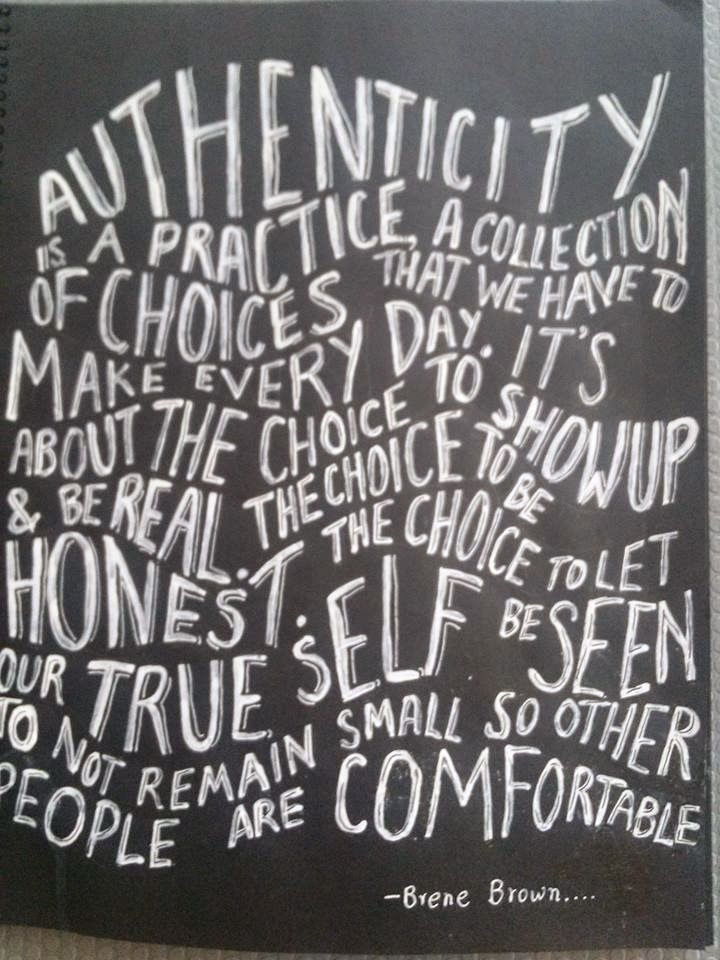 AUTHENTICITY
IS A PRACTICE, A COLLECTION
OF CHOICES THAT WE HAVE TO
MAKE EVERY DAY. IT'S
ABOUT THE CHOICE TO SHOW UP
& BE REAL. THE CHOICE TO BE
HONEST. THE CHOICE TO LET
OUR TRUE SELF BE SEEN
TO NOT REMAIN SMALL SO OTHER
PEOPLE ARE COMFORTABLE
-Brene Brown....